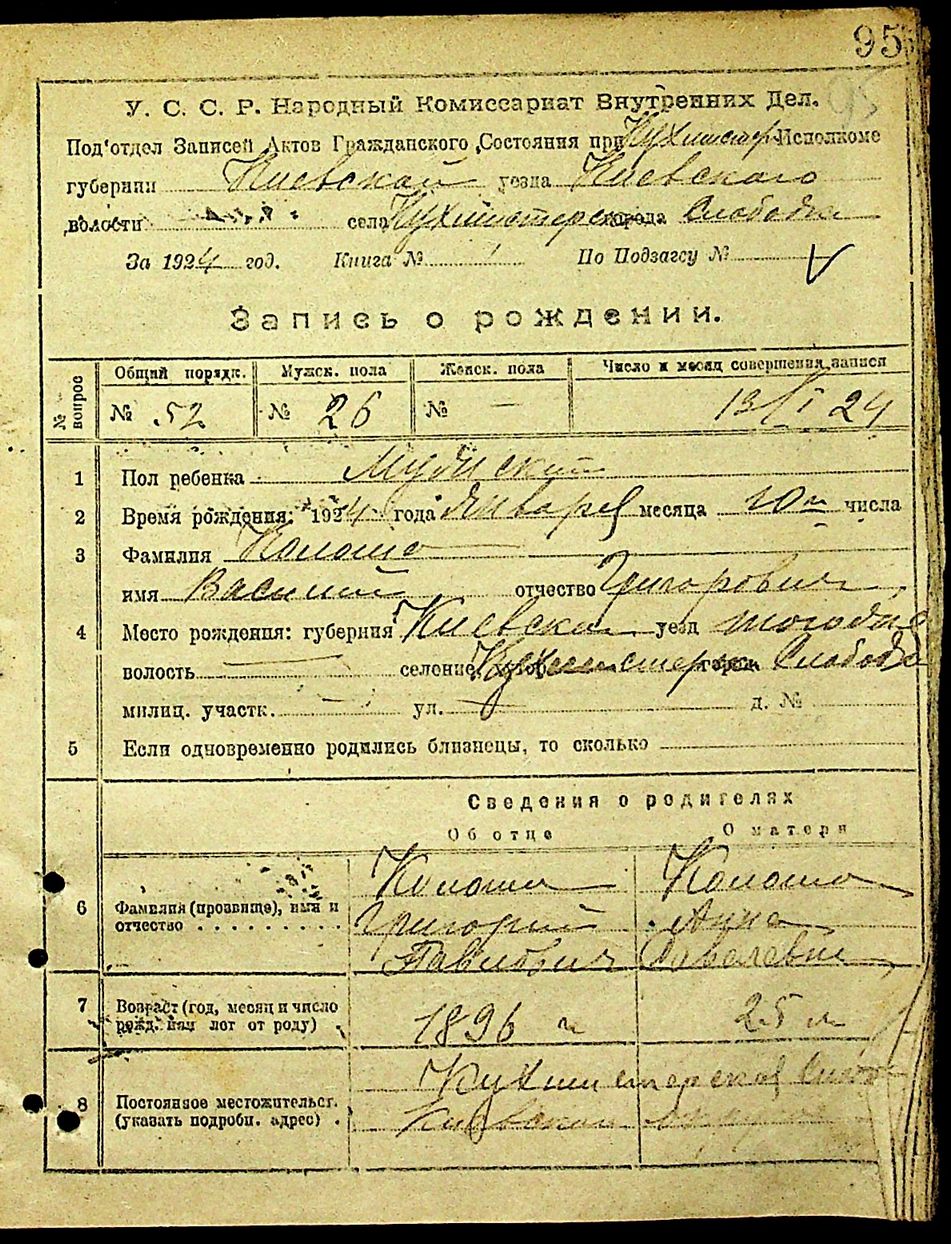 95
У. С. С. Р. Народный Комиссариат Внутренних Дел.
Под'отдел Записей Актов Гражданского Состояния при Кухмистер Исполкоме
губернии Киевской уезда Киевского
волости села Кухмистерск города Слободка
За 1924 год. Книга № 1 По Подзагсу №
Запись о рождении.
№ вопрос Общий порядк. Мужск. пола Женск. пола Число и месяц совершения записи
№ 52 № 26 № — 13/I 24
1 Пол ребенка Мужской
2 Время рождения: 1924 года Января месяца 10го числа
3 Фамилия
имя Василий отчество Григорович
4 Место рождения: губерния Киевская уезд
волость — селение Кухмистерск город Слобода
милиц. участк. — ул. — д. №
5 Если одновременно родились близнецы, то сколько
Сведения о родителях
Об отце О матери
6 Фамилия (прозвище), имя и отчество
Григорий Анна
Павлович
7 Возраст (год, месяц и число рожд. или лет от роду) 1896 г 25 л
8 Постоянное местожительст. (указать подробн. адрес)
Кухмистерская
Киевской